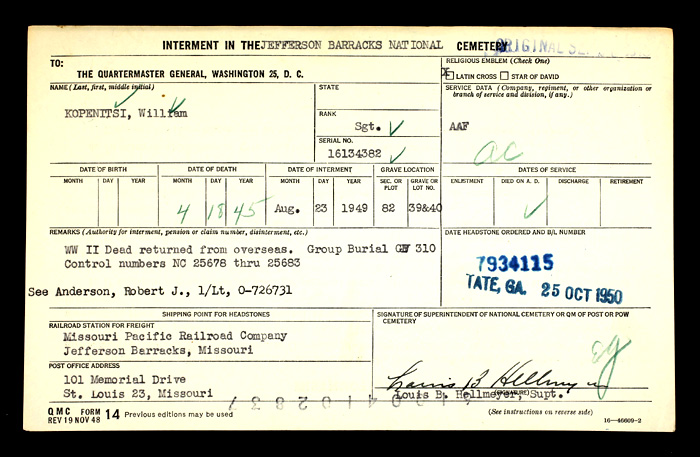 INTERMENT IN THE JEFFERSON BARRACKS NATIONAL CEMETERY
ORIGINAL
TO:
THE QUARTERMASTER GENERAL, WASHINGTON 25, D. C.
RELIGIOUS EMBLEM (Check One)
X LATIN CROSS STAR OF DAVID
NAME (Last, first, middle initial)
KOPENITSI, William
STATE
RANK
Sgt.
SERIAL NO.
16134382
SERVICE DATA (Company, regiment, or other organization or branch of service and division, if any.)
AAF
ac
DATE OF BIRTH DATE OF DEATH DATE OF INTERMENT GRAVE LOCATION DATES OF SERVICE
MONTH DAY YEAR MONTH DAY YEAR MONTH DAY YEAR SEC. OR PLOT GRAVE OR LOT NO. ENLISTMENT DIED ON A. D. DISCHARGE RETIREMENT
4 18 45 Aug. 23 1949 82 39&40
REMARKS (Authority for interment, pension or claim number, disinterment, etc.)
WW II Dead returned from overseas. Group Burial 310
Control numbers NC 25678 thru 25683
See Anderson, Robert J., 1/Lt, O-726731
DATE HEADSTONE ORDERED AND B/L NUMBER
7934115
TATE, GA. 25 OCT 1950
SHIPPING POINT FOR HEADSTONES
RAILROAD STATION FOR FREIGHT
Missouri Pacific Railroad Company
Jefferson Barracks, Missouri
POST OFFICE ADDRESS
101 Memorial Drive
St. Louis 23, Missouri
SIGNATURE OF SUPERINTENDENT OF NATIONAL CEMETERY OR QM OF POST OR POW CEMETERY
Louis B Hellmeyer
(SIGNATURE)
Louis B. Hellmeyer, Supt.
QMC FORM 14 Previous editions may be used
REV 19 NOV 48
(See instructions on reverse side)
16—46609-2